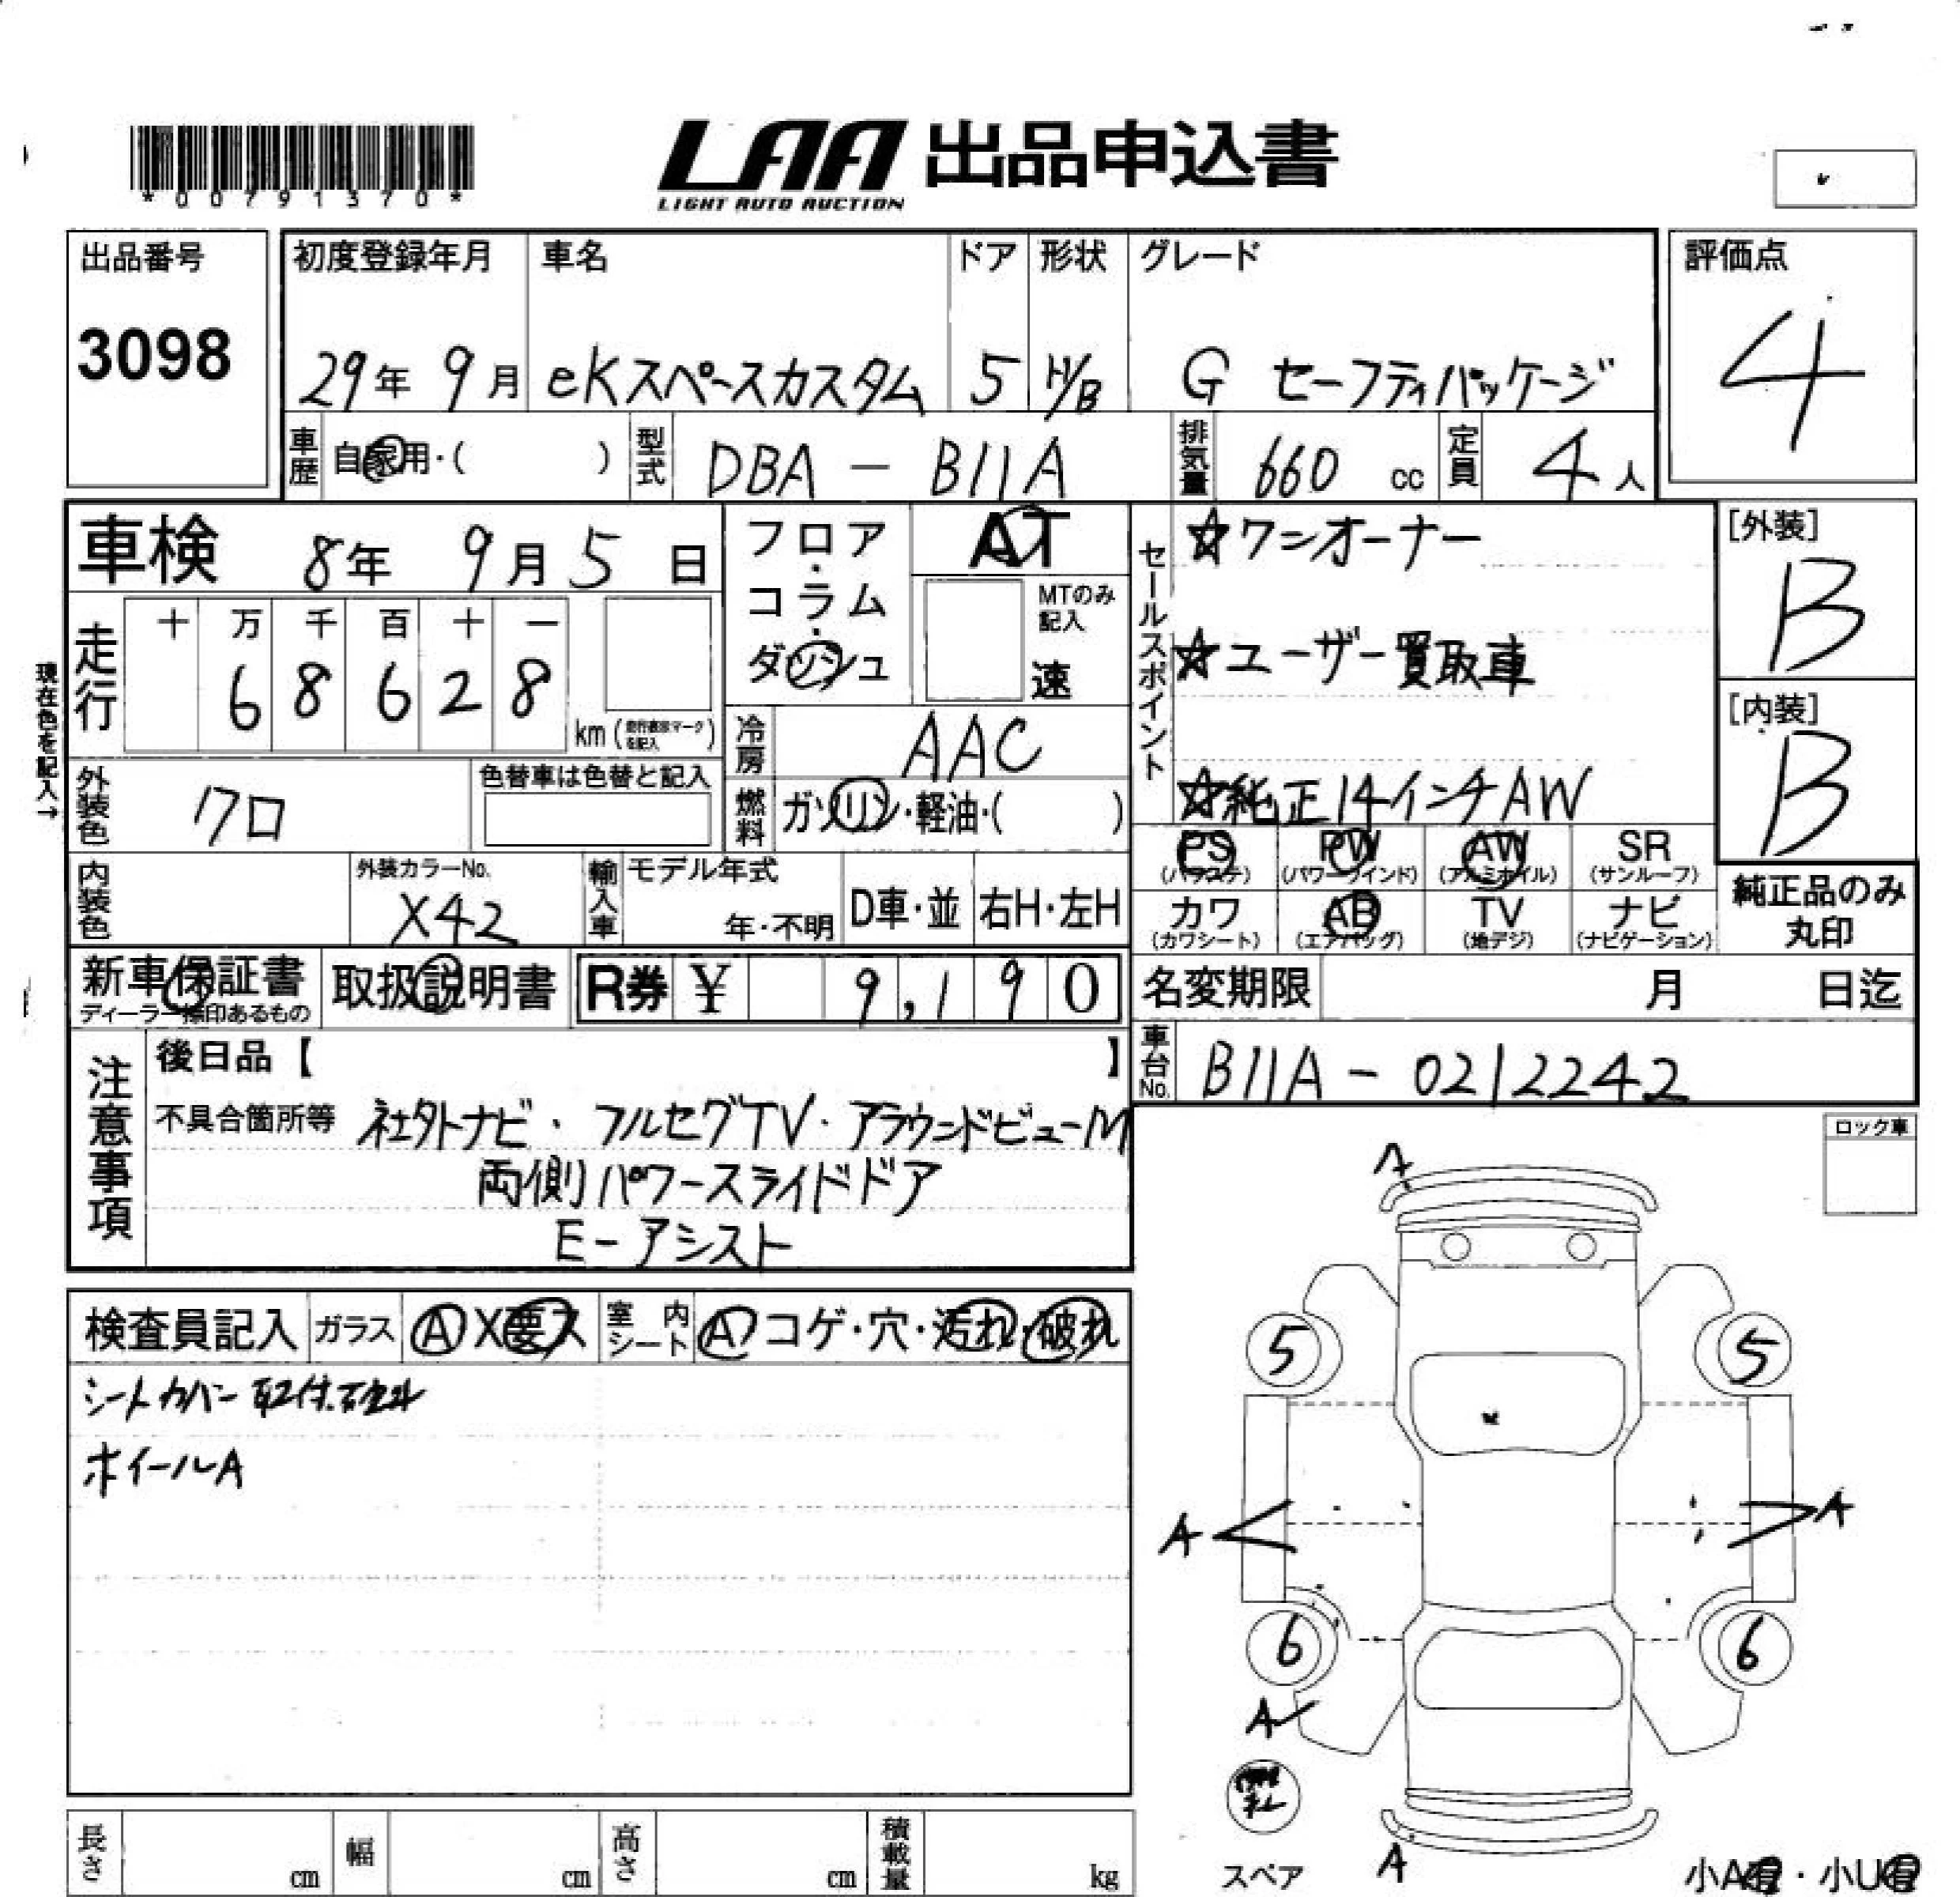 *00791370*
LAA 出品申込書
LIGHT AUTO AUCTION
出品番号 初度登録年月 車名 ドア 形状 グレード 評価点
3098 29年 9月 eKスペースカスタム 5 H/B G セーフティパッケージ 4
車歴 自家用・( ) 型式 DBA - B11A 排気量 660 cc 定員 4人
車検 8年 9月5日 フロア・コラム・ダッシュ AT セールスポイント ☆ワンオーナー [外装] B
MTのみ記入 速
現在色を記入→
走行 十 万 千 百 十 一
6 8 6 2 8 km
☆ユーザー買取車 [内装] B
冷房 AAC
☆純正14インチAW
外装色 クロ 色替車は色替と記入 燃料 ガソリン・軽油・( )
PS PW AW SR
(パワステ) (パワーウインド) (アルミホイル) (サンルーフ)
カワ AB TV ナビ 純正品のみ丸印
(カワシート) (エアバッグ) (地デジ) (ナビゲーション)
内装色 外装カラーNo. X42 輸入車 モデル年式 年・不明 D車・並 右H・左H
新車保証書 取扱説明書 R券 ¥ 9,190 名変期限 月 日迄
車台No. B11A - 0212242
注意事項 後日品【 】
不具合箇所等 社外ナビ・フルセグTV・アラウンドビューM
両側パワースライドドア
E-アシスト
ロック車
検査員記入 ガラス A X 要ス 室内シート A コゲ・穴・汚れ・破れ
シートカバー取付
ホイールA
A
5 5
A A
6 6
A
スペア
A
小A有・小U有
長さ cm 幅 cm 高さ cm 積載量 kg